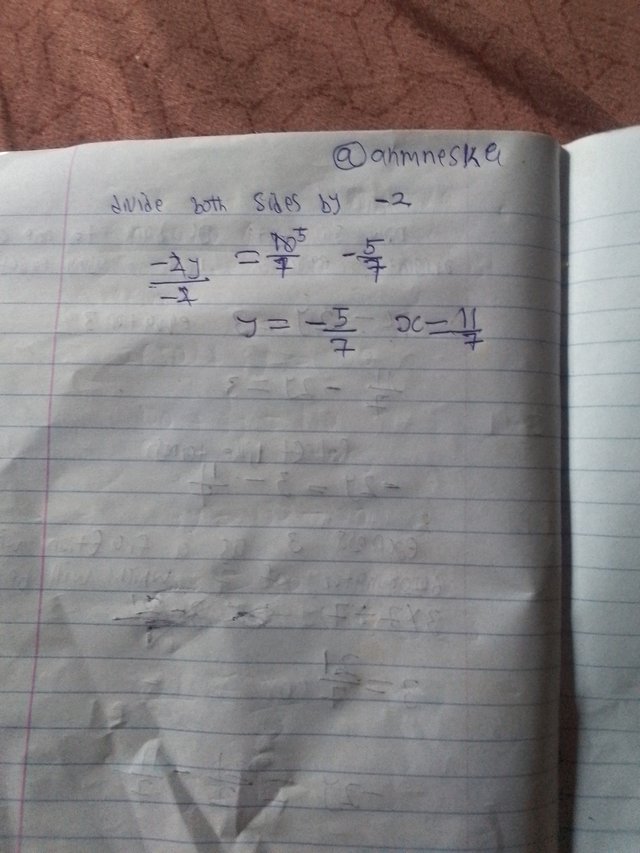 @ahmneska
divide both sides by -2
-2y/-2 = 10/7 5 -5/7
y = -5/7 x = 11/7